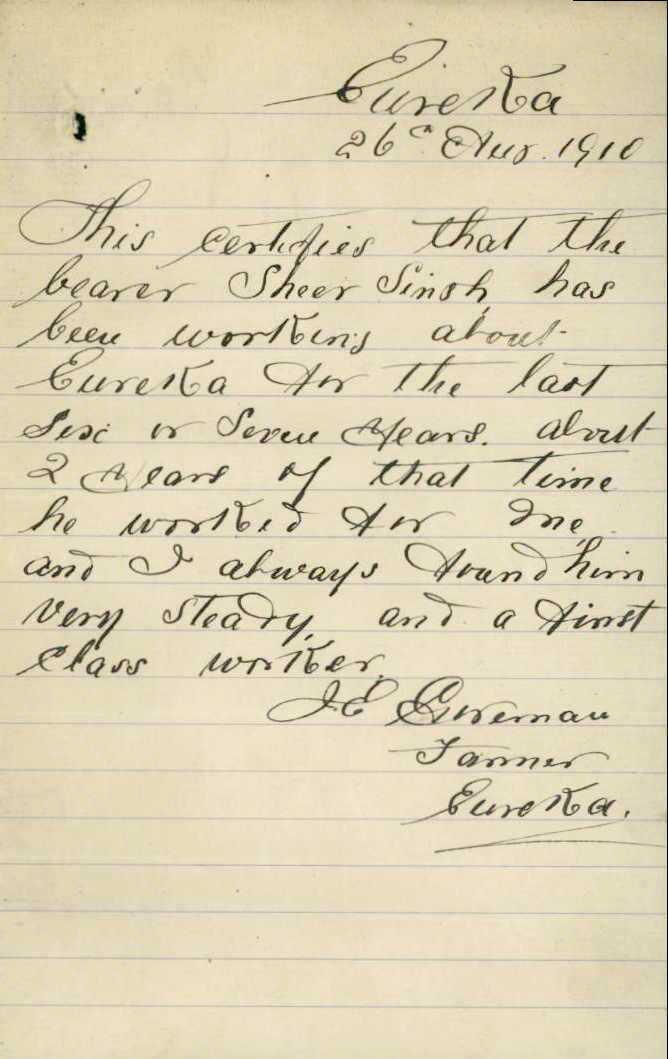 Eureka
26th Aug. 1910
This certifies that the
bearer Sheer Singh, has
been working about
Eureka for the last
Six or Seven Years. about
2 Years of that time
he worked for me,
and I always found him
very steady, and a first
class worker.
J E
Farmer
Eureka.